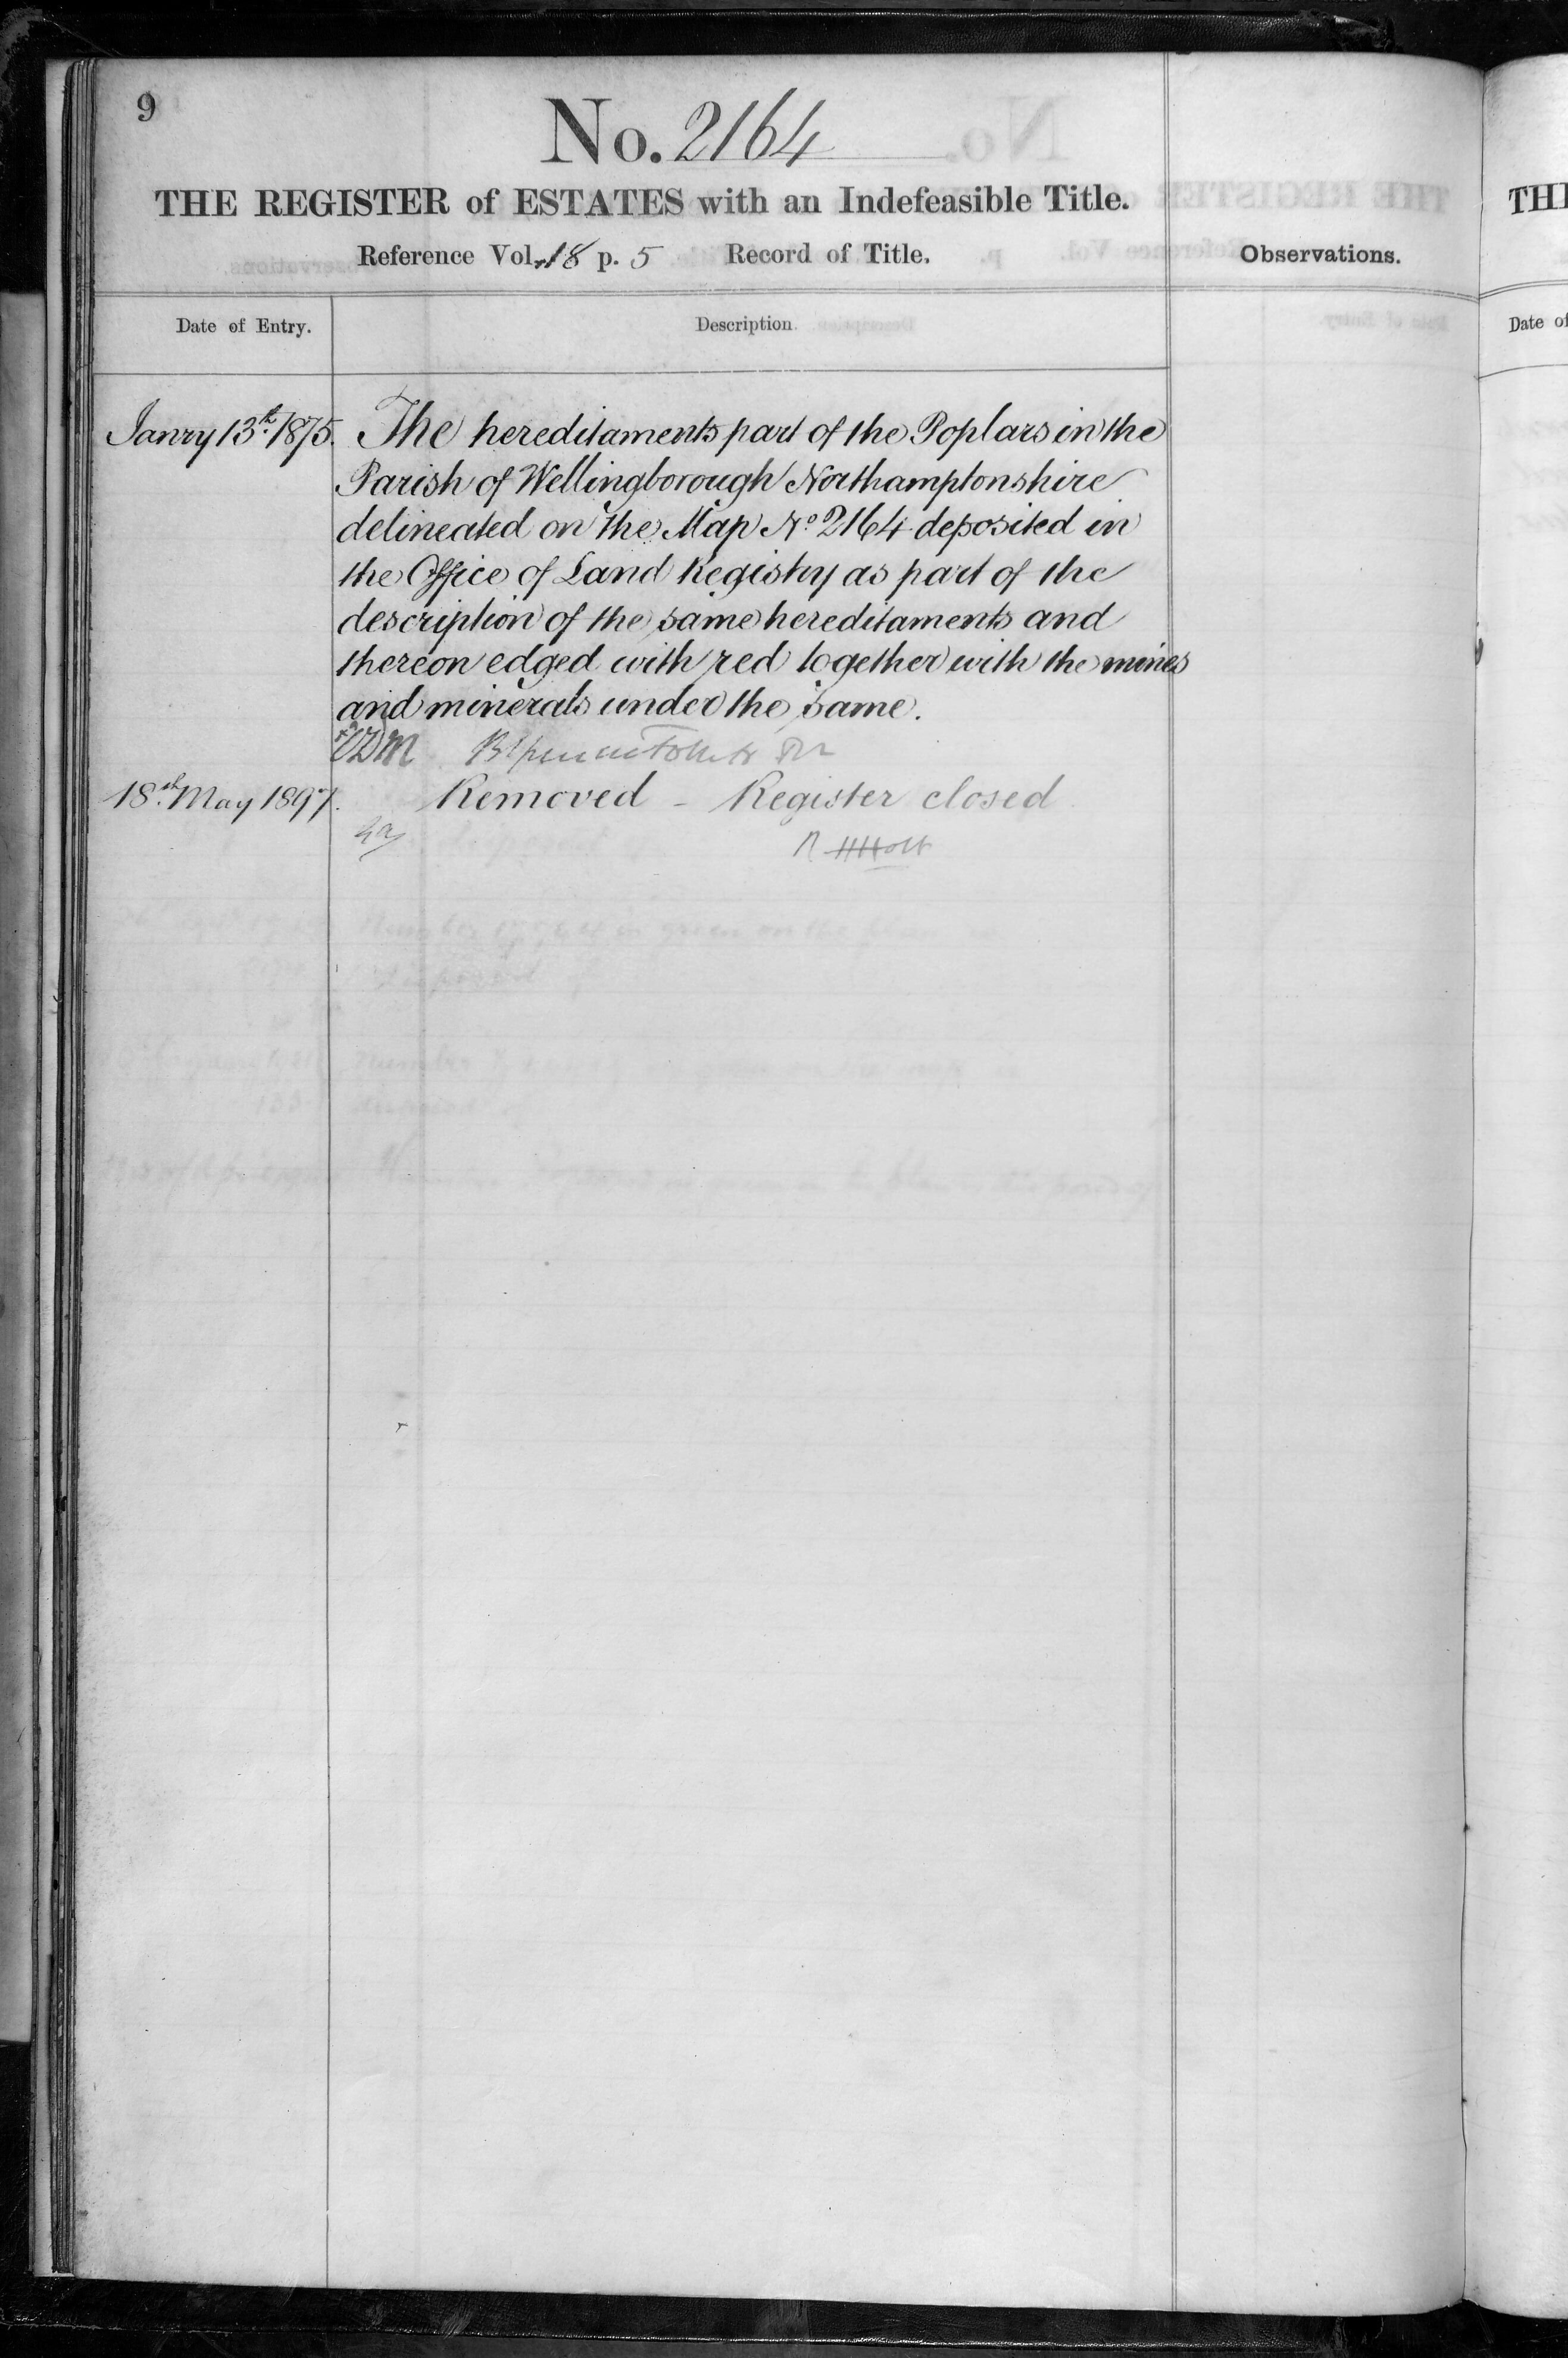 9
No. 2164
THE REGISTER of ESTATES with an Indefeasible Title.
Reference Vol. 18 p. 5 Record of Title.
Observations.
Date of Entry.
Description.
Janry 13th. 1875.
The hereditaments part of the Poplars in the
Parish of Wellingborough Northamptonshire
delineated on the Map No 2164 deposited in
the Office of Land Registry as part of the
description of the same hereditaments and
thereon edged with red together with the mines
and minerals under the same.
18th. May 1897.
Removed - Register closed
Holt
TH
Date of